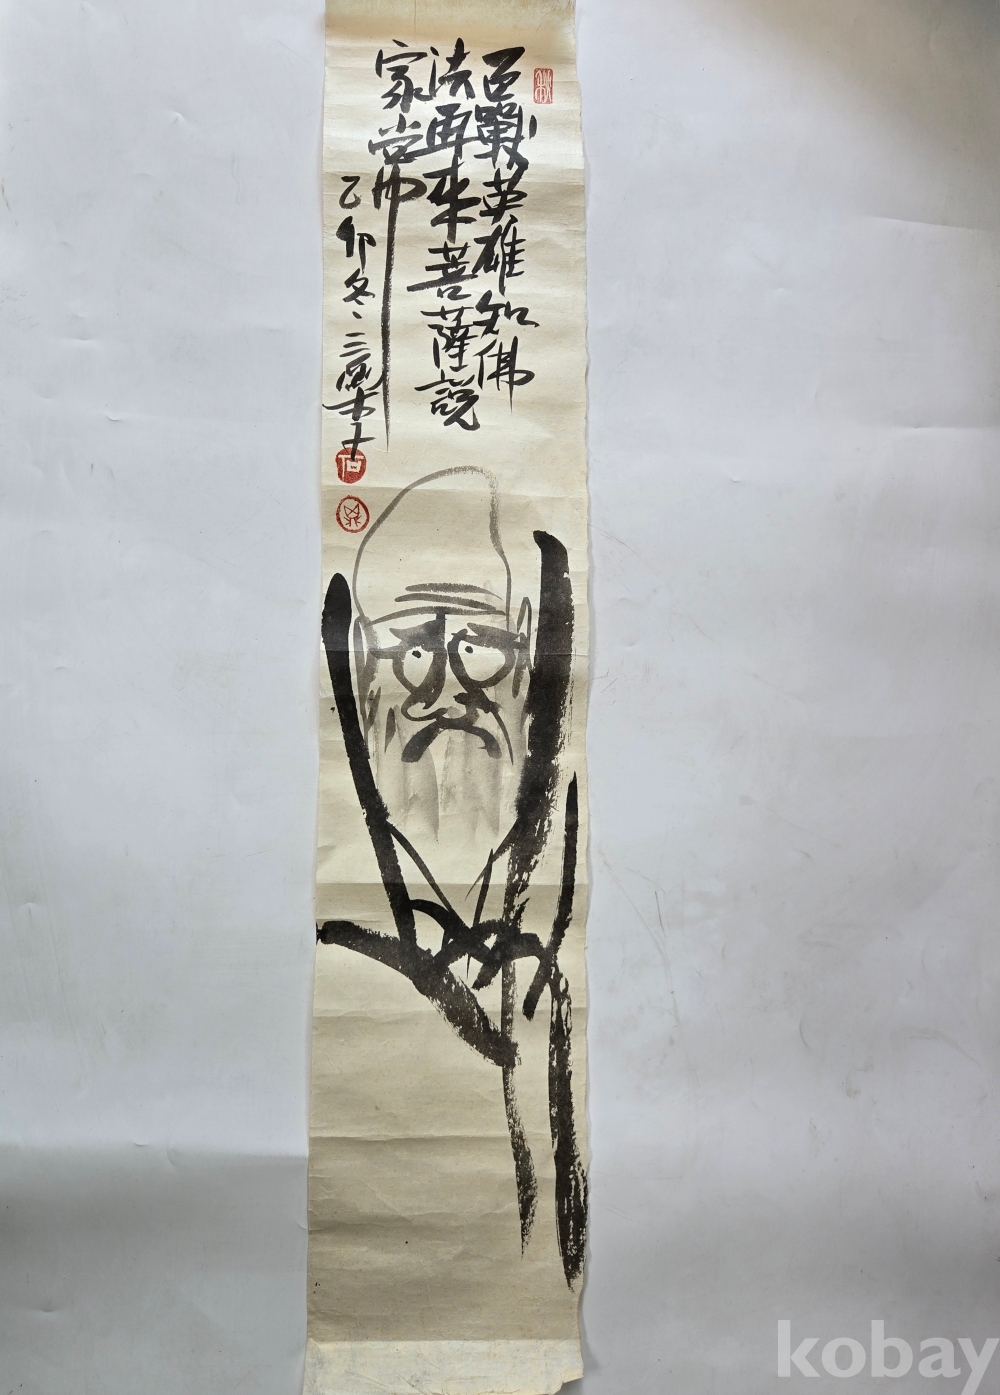 百戰英雄知佛
法再來菩薩說
家常
乙卯冬三
石
kobay